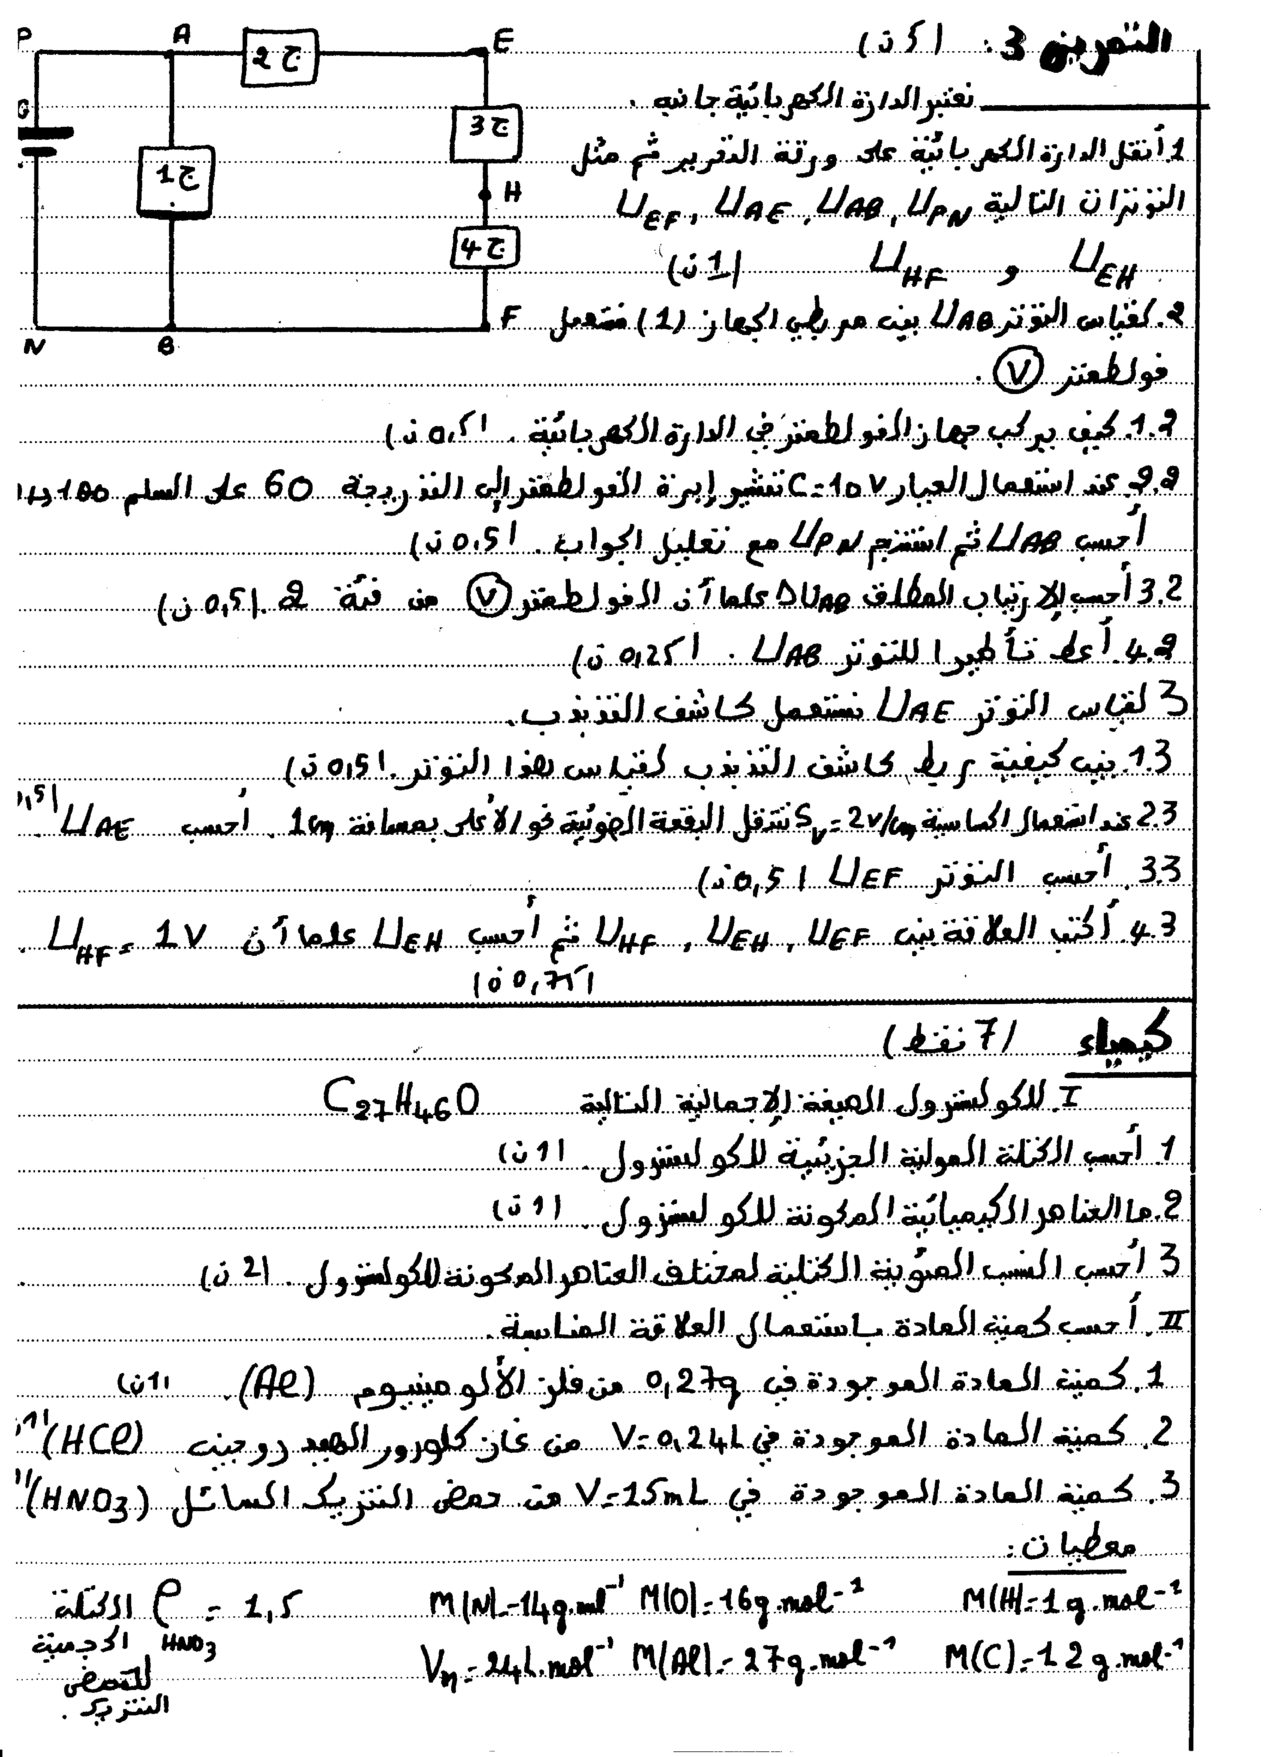 التمرين 3: (5ن)
نعتبر الدارة الكهربائية جانبه.
P A ج2 E
G ج1 ج3 H ج4
N B F
1. أنقل الدارة الكهربائية على ورقة التحرير ثم مثل
التوترات التالية UPN, UAB, UAE, UEF,
UEH و UHF (1ن)
2. لقياس التوتر UAB بين مربطي الجهاز (1) نستعمل
فولطمتر V.
1.2. كيف يركب جهاز الفولطمتر في الدارة الكهربائية. (0,5ن)
2.2. عند استعمال العيار C=10V تشير إبرة الفولطمتر إلى التدريجة 60 على السلم 100
أحسب UAB ثم استنتج UPN مع تعليل الجواب. (0,5ن)
3.2 أحسب الإرتياب المطلق ΔUAB علما أن الفولطمتر V من فئة 2. (0,5ن)
4.2. أعط تأطيرا للتوتر UAB. (0,25ن)
3 لقياس التوتر UAE نستعمل كاشف التذبذب.
1.3. بين كيفية ربط كاشف التذبذب لقياس هذا التوتر. (0,5ن)
2.3 عند استعمال الحساسية Sv=2V/cm تنتقل البقعة الضوئية نحو الأعلى بمسافة 1cm. أحسب UAE.
3.3. أحسب التوتر UEF (0,5ن)
4.3. أكتب العلاقة بين UEF, UEH, UHF ثم أحسب UEH علما أن UHF = 1V.
(0,75ن)
كيمياء (7 نقط)
I. للكولسترول الصيغة الإجمالية التالية C27H46O
1. أحسب الكتلة المولية الجزيئية للكولسترول. (1ن)
2. ما العناصر الكيميائية المكونة للكولسترول. (1ن)
3 أحسب النسب المئوية الكتلية لمختلف العناصر المكونة للكولسترول. (2ن)
II. أحسب كمية المادة باستعمال العلاقة المناسبة.
1. كمية المادة الموجودة في 0,27g من فلز الألومينيوم (Al). (1ن)
2. كمية المادة الموجودة في V=0,24L من غاز كلورور الهيدروجين (HCl)
3. كمية المادة الموجودة في V=15mL من حمض النتريك السائل (HNO3)
معطيات:
M(H)=1g.mol-1 M(O)=16g.mol-1 M(N)=14g.ml-1 ρHNO3 = 1,5 الكتلة
M(C)=12g.mol-1 M(Al)=27g.mol-1 Vm=24L.mol-1 الحجمية
للحمض
النتريك.